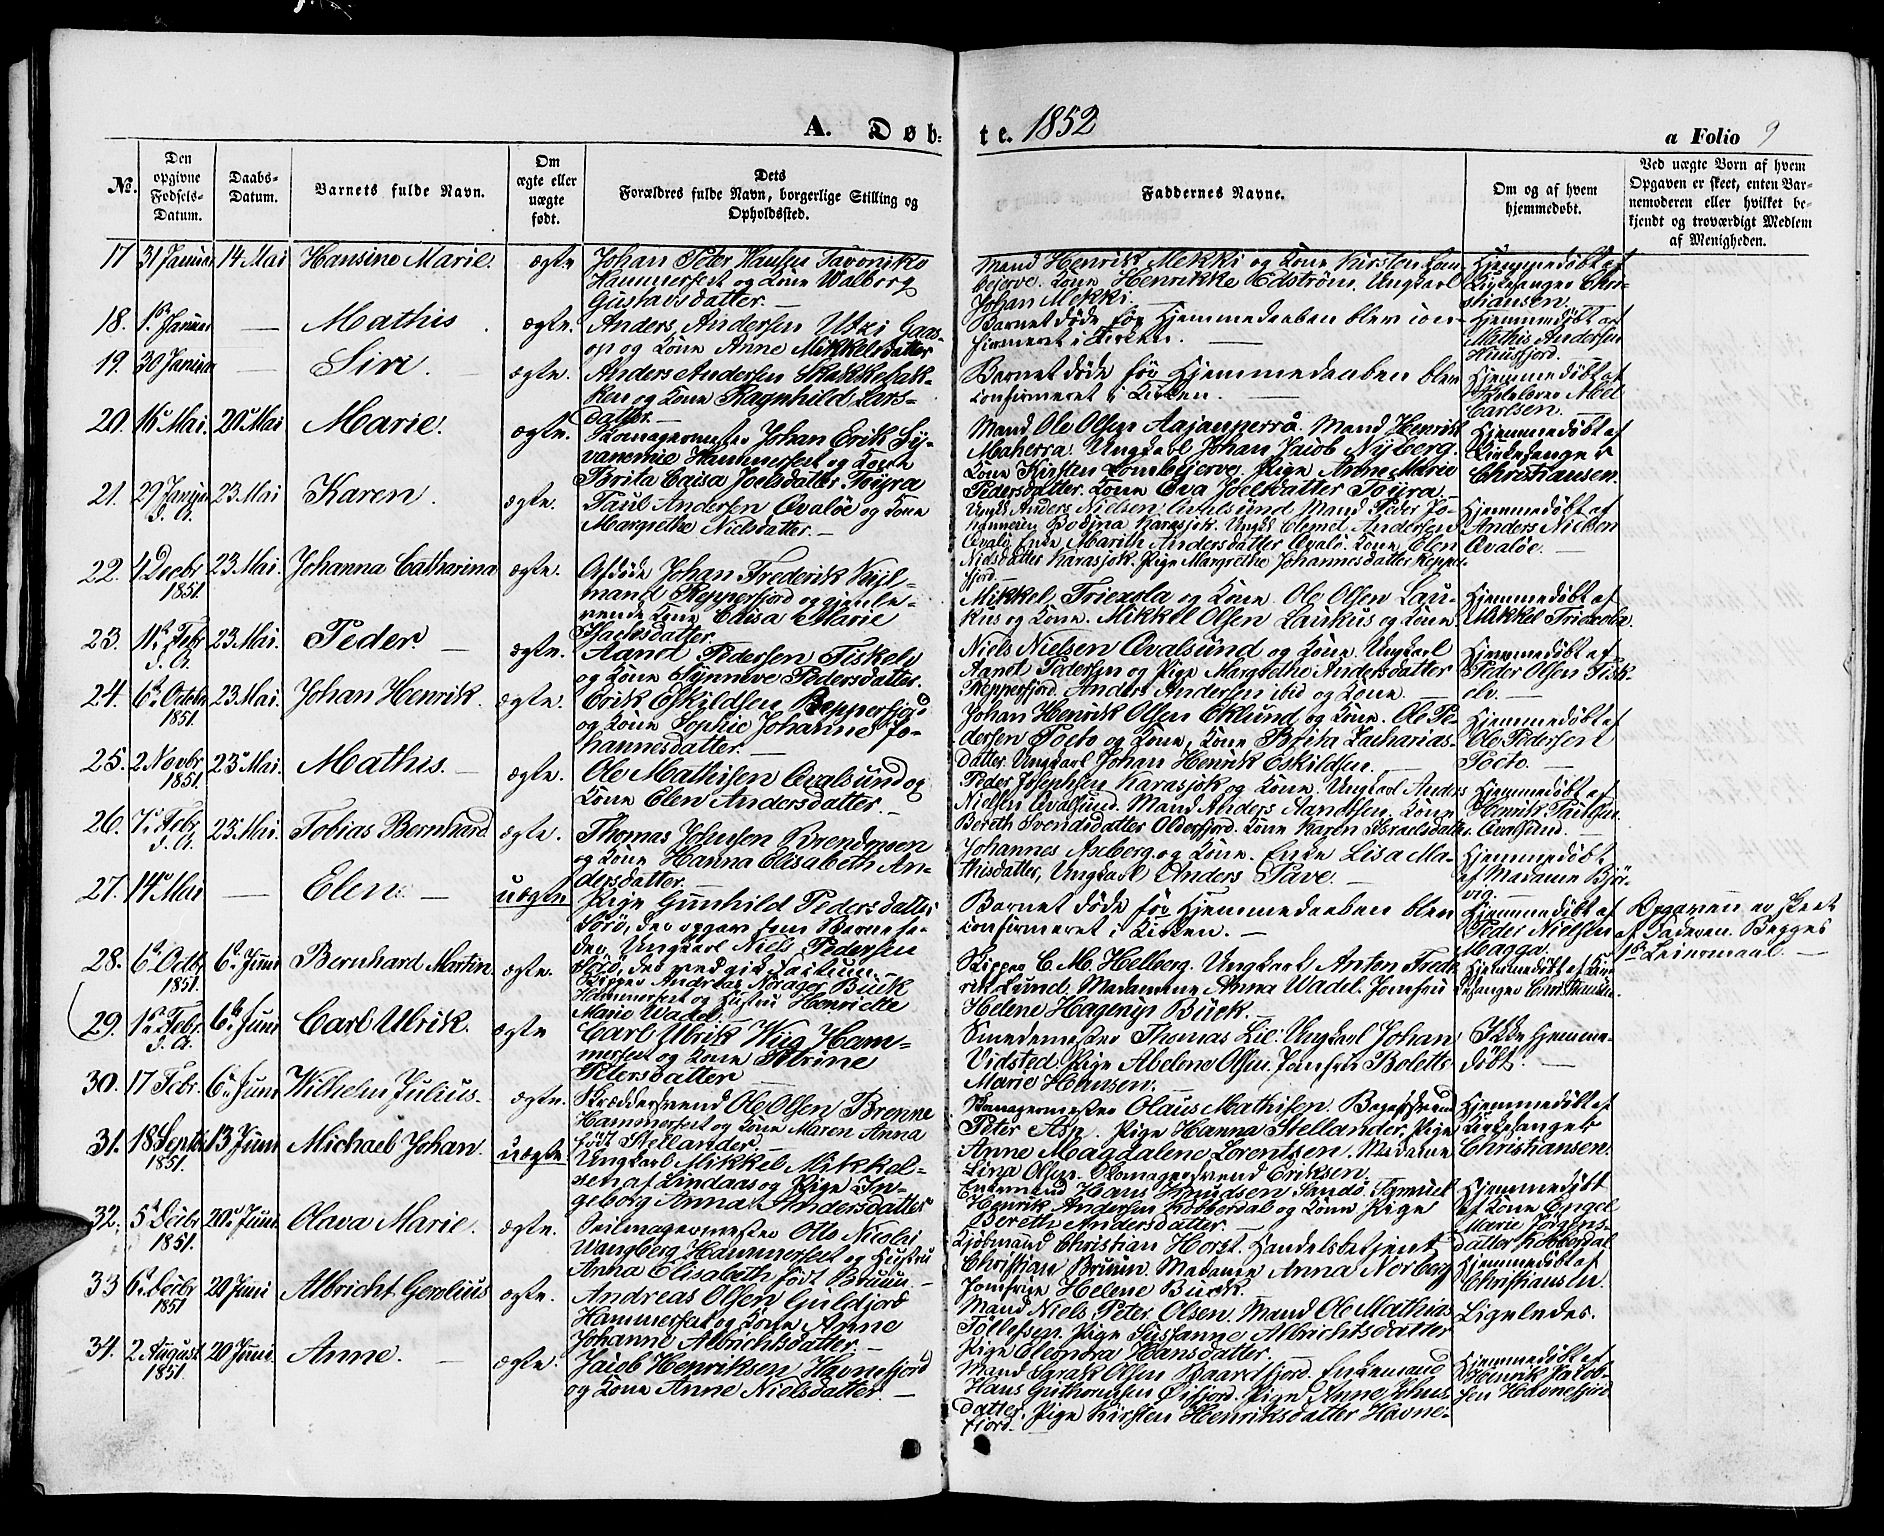 A. Døb=
te. 1852
a Folio 9
No.
Den opgivne Fødsels-Datum.
Daabs-Datum.
Barnets fulde Navn.
Om ægte eller uægte født.
Dets Forældres fulde Navn, borgerlige Stilling og Opholdssted.
Faddernes Navne.
Om og af hvem hjemmedøbt.
Ved uægte Børn af hvem Opgaven er skeet, enten Barnemoderen eller hvilket bekjendt og troværdigt Medlem af Menigheden.
17 31 Januar 14 Mai Hansine Marie. ægte
Johan Peter Hansen
Hammerfest og Kone Walborg
Gustavsdatter.
Mand Henrik Mekki og Kone Kirsten
Kone Henrikke Edstrøm, Ungkarl
Johan Mekki.
Hjemmedøbt af
Kirkesanger Chri-
stiansen.
18. Januar — Mathis ægte.
Anders Andersen
og Kone Anne Mikkelsdatter
Barnet døde før Hjemmedaaben blev con-
firmeret i Kirken.
Hjemmedøbt af
Mathis Andersen
19. 30 Januar — Siri. ægte.
Anders Andersen
og Kone Ragnhild Lars-
datter.
Barnet døde før Hjemmedaaben blev
confirmeret i Kirken.
Hjemmedøbt af
Abel
Carlsen.
20. 16 Mai. 20 Mai Marie. ægte.
Skomagermester Johan Erik
Hammerfest og Kone
Brita Caisa Joelsdatter Töyra
Mand Ole Olsen Mand Henrik
Maherra. Ungkarl Johan Jacob Nyberg.
Kone Kirsten Pige Anne Marie
Pedersdatter. Kone Eva Joelsdatter Töyra
Hjemmedøbt af
Kirkesanger
Christiansen.
21. 29 Januar d. A. 23 Mai Karen. ægte.
Paul Andersen Qvaløe og Kone
Margrethe Nielsdatter.
Ungk. Anders Nielsen Qvalsund Mand Peder Jo-
hannesen Karasjok. Ungk. Clemet Andersen
Qvalö. Enke Marith Andersdatter Qvalö. Kone Elen
Nielsdatter Karasjok. Pige Margrethe Johannesdatter Repper-
fjord.
Hjemmedøbt af
Anders Nielsen
Qvaløe.
22. 4 Decbr 1851. 23 Mai. Johanna Catharina ægte.
Afdøde Johan Frederik
Repperfjord og gjenle-
vende Kone Caisa Marie
Mikkel Triexola og Kone. Ole Olsen Lau-
kus og Kone. Mikkel Olsen Laukus og Kone
Hjemmedøbt af
Mikkel Triexola.
23. 11. Febr d. A. 23 Mai. Peder. ægte.
Aand Pedersen Fiskelv
og Kone Synneve Pedersdatter.
Niels Nielsen Qvalsund og Kone. Ungkarl
Aand Pedersen og Pige Margrethe Andersdatter
Repperfjord. Anders Andersen ibid og Kone.
Hjemmedøbt af
Peder Olsen Fisk-
elv.
24. 6 Octobr 1851. 23 Mai. Johan Henrik. ægte.
Erik Eskildsen Repperfjord
og Kone Sophie Johanne Jo-
hannesdatter.
Johan Henrik Olsen Eklund og Kone. Ole Pe-
dersen Pocto og Kone, Kone Brita Zacharias-
datter. Ungkarl Johan Henrik Eskildsen.
Hjemmedøbt af
Ole Pedersen
Pocto.
25. 2 Novbr 1851. 23 Mai. Mathis. ægte.
Ole Mathisen Qvalsund og
Kone Elen Andersdatter.
Peder Josephsen Karasjok og Kone. Ungkarl Anders
Nielsen Qvalsund. Mand Anders Aandsen, Kone
Bereth Svendsdatter Olderfjord. Kone Karen Israelsdatter.
Hjemmedøbt af
Henrik Paulsen
Qvalsund.
26. 7 Febr. d. A. 23 Mai. Tobias Bernhard ægte.
Thomas Johnsen Brendmoen
og Kone Hanna Elisabeth An-
dersdatter.
Johannes Axberg og Kone. Enke Lisa Ma-
thisdatter, Ungkarl Anders Pave.
Hjemmedøbt
af Madame Björ-
vig.
27. 14 Mai — Elen. uægte.
Pige Gunhild Pedersdatter
Sörö, der opgav som Barnefa-
der, Ungkarl Niels Pedersen
Sörö, der vedgik Factum.
Barnet døde før Hjemmedaaben blev
confirmeret i Kirken.
Hjemmedøbt af
Peder Nielsen
Magga.
Opgaven er skeet
af Faderen. Begges
1ste Leiermaal.
28. 6 Octbr 1851. 6 Juni Bernhard Martin ægte.
Skipper Andreas Norager Buck
Hammerfest og Hustru Henricke
Marie Wadel.
Skipper C. M. Hellberg. Ungkarl Anton Frede-
rik Lund. Madamme Anna Wadel. Jomfru
Helene Hagerup Buck.
Hjemmedøbt af Kir-
kesanger Christiansen.
29. 1 Febr. d. A. 6 Juni Carl Ulrik. ægte
Carl Ulrik Wiig Ham-
merfest og Kone Petrine
Petersdatter
Smedemester Thomas Lil. Ungkarl Johan
Vidsted. Pige Abelene Olsen. Jomfru Bolette
Marie Hansen.
Ikke hjemme-
døbt.
30. 17 Febr. 6 Juni Wilhelm Julius. ægte.
Skræddersvend Ole Olsen Brenne
Hammerfest og Kone Maren Anna
født Stellander.
Skomagermester Olaus Mathisen. Bagersvend
Peter Asp. Pige Hanna Stellander. Pige
Anne Magdalene Lorentsen. Madame
Lina Olsen. Skomagersvend Eriksen.
Hjemmedøbt af
Kirkesanger
Christiansen.
31. 18 Septbr 1851. 13 Juni Michael Johan. uægte
Ungkarl Mikkel Mikkel-
sen af Lindaas og Pige In-
geborg Anna Andersdatter
Enkemand Hans Knudsen Sandö. Samuel
Henrik Andersen Kobberdal og Kone Pige
Bereth Andersdatter.
Hjemmedøbt
af Kone Engel
Marie Jörgens-
datter Kobberdal
32. 5 Decbr 1851. 20 Juni Olava Marie. ægte.
Seilmagermester Otto Nicolai
Wangberg Hammerfest og Hustru
Anna Elisabeth født Bruun.
Kjøbmand Christian Horst. Handelsbetjent
Christian Bruun. Madame Anna Norberg
Jomfrue Helene Buck.
Hjemmedøbt af
Christiansen.
33 6 Decbr 1851 20 Juni Albricht Gerelius ægte.
Andreas Olsen Guldfjord
Hammerfest og Kone Anne
Johanne Albrichtsdatter.
Mand Niels Peter Olsen. Mand Ole Mathias
Tollefsen. Pige Susanne Albrichtsdatter
Pige Eleonora Hansdatter.
Ligeledes.
34. 2 August 1851. 20 Juni. Anne. ægte.
Jacob Henriksen Havnefjord
og Kone Anne Nielsdatter.
Mand Isrask Olsen Baardfjord. Enkemand
Hans Guthormsen Pige Anne Johns-
datter. Pige Kirsten Henriksdatter Havne-
fjord.
Hjemmedøbt af
Henrik Jacob-
sen Havnefjord